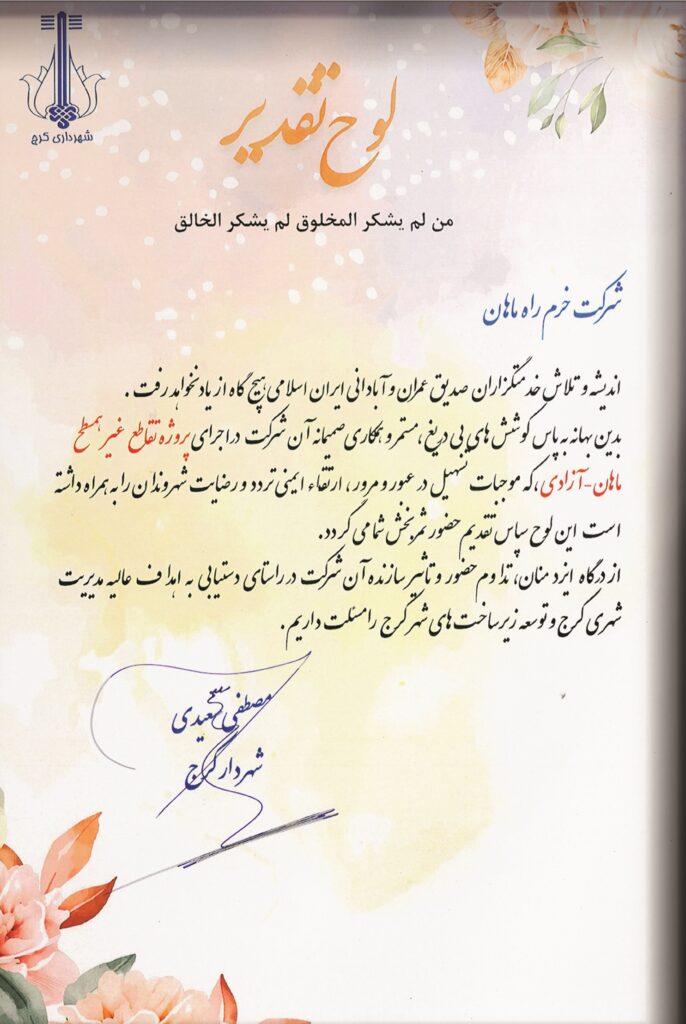 شهرداری کرج
لوح تقدیر
من لم یشکر المخلوق لم یشکر الخالق
شرکت خرم راه ماهان
اندیشه و تلاش خدمتگزاران صدیق عمران و آبادانی ایران اسلامی هیچ گاه از یاد نخواهد رفت .
بدین بهانه به پاس کوشش های بی دریغ، مستمر و همکاری صمیمانه آن شرکت در اجرای پروژه تقاطع غیر همسطح
ماهان-آزادی، که موجبات تسهیل در عبور و مرور ، ارتقاء ایمنی تردد و رضایت شهروندان را به همراه داشته
است این لوح سپاس تقدیم حضور ثمربخش شما می گردد.
از درگاه ایزد منان، تداوم حضور و تاثیر سازنده آن شرکت در راستای دستیابی به اهداف عالیه مدیریت
شهری کرج و توسعه زیرساخت های شهر کرج را مسئلت داریم.
مصطفی سعیدی
شهردار کرج